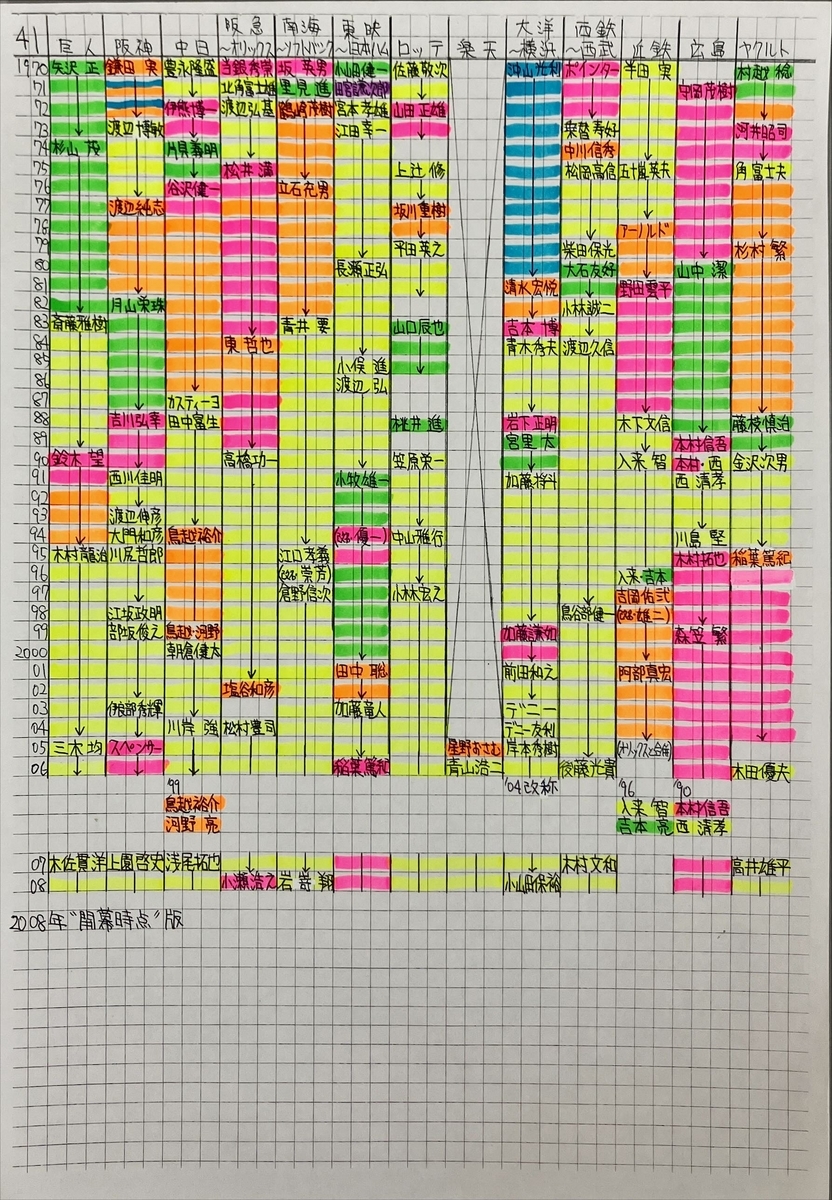 41 巨人 阪神 中日 阪急～オリックス 南海～ソフトバンク 東映～日本ハム ロッテ 楽天 大洋～横浜 西鉄～西武 近鉄 広島 ヤクルト
1970 矢沢正 鎌田実 豊永隆盛 当銀秀崇 坂英男 小山田健一 佐藤敬次 沖山光利 ポインター 半田実 村越稔
71 北角富士雄 里見進 田宮謙次郎 苑田茂樹
72 伊熊博一 渡辺弘基 鶴崎茂樹 宮本孝雄 山田正雄
73 渡辺博敏 江田幸一 乗替寿好 河井昭司
74 杉山茂 片貝義明 中川信秀
75 松井満 上辻修 松岡高信 五十嵐英夫 角富士夫
76 谷沢健一 立石充男
77 渡辺純志 坂川重樹
78 アーノルド
79 平田英之 柴田保光 杉村繁
80 長瀬正弘 大石友好 山中潔
81 清水宏悦 野田雲平
82 月山栄珠 小林誠二
83 斎藤雅樹 青井要 山口辰也 吉本博
84 東哲也 青木秀夫 渡辺久信
85 小俣進
86 渡辺弘
87 カスティーヨ
88 吉川弘幸 田中富生 桃井進 岩下正明 木下文信 藤枝慎治
89 宮里太 本村信吾
90 鈴木望 高橋功一 笠原栄一 入来智 本村・西 金沢次男
91 西川佳明 小牧雄一 加藤将斗 西清孝
92
93 渡辺伸彦
94 大門和彦 鳥越裕介 (改名・優一) 中山雅行 川島堅
95 木村龍治 川尻哲郎 江口孝義 木村拓也 稲葉篤紀
96 (改名・崇芳) 入来・吉本
97 倉野信次 小林宏之 吉岡佑弐
98 江坂政明 鳥谷部健一 (改名・雄二)
99 部坂俊之 鳥越・河野 加藤謙如 森笠繁
2000 朝倉健太
01 田中聡 前田和之 阿部真宏
02 塩谷和彦
03 伊良部秀輝 加藤竜人 デニー
04 川岸強 松村豊司 デニー友利
05 三木均 スペンサー 星野おさむ 岸本秀樹 (オリックスと合併)
06 稲葉篤紀 青山浩二 後藤光貴 木田優夫
'99 '04改称 '96 '90
鳥越裕介 入来智 本村信吾
河野亮 吉本亮 西清孝
07 木佐貫洋 上園啓史 浅尾拓也 木村文和 高井雄平
08 小瀬浩之 岩嵜翔 小山田保裕
2008年“開幕時点”版